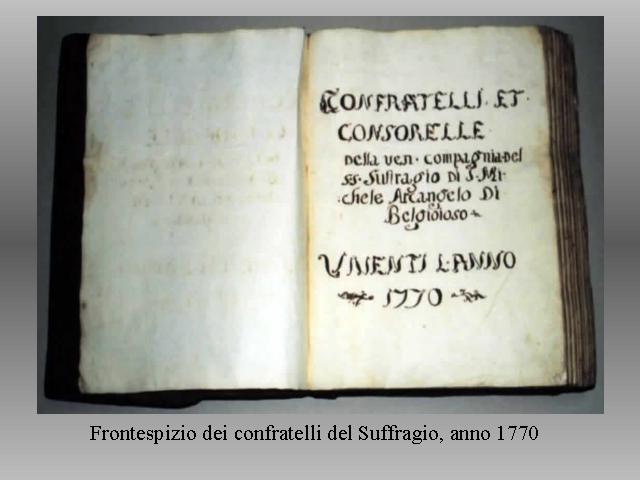 CONFRATELLI. ET.
CONSORELLE
Della ven. compagnia Del
SS. Suffragio Di S. Mi-
chele Arcangelo Di
Belgioioso
VIVENTI L'ANNO
1770
Frontespizio dei confratelli del Suffragio, anno 1770